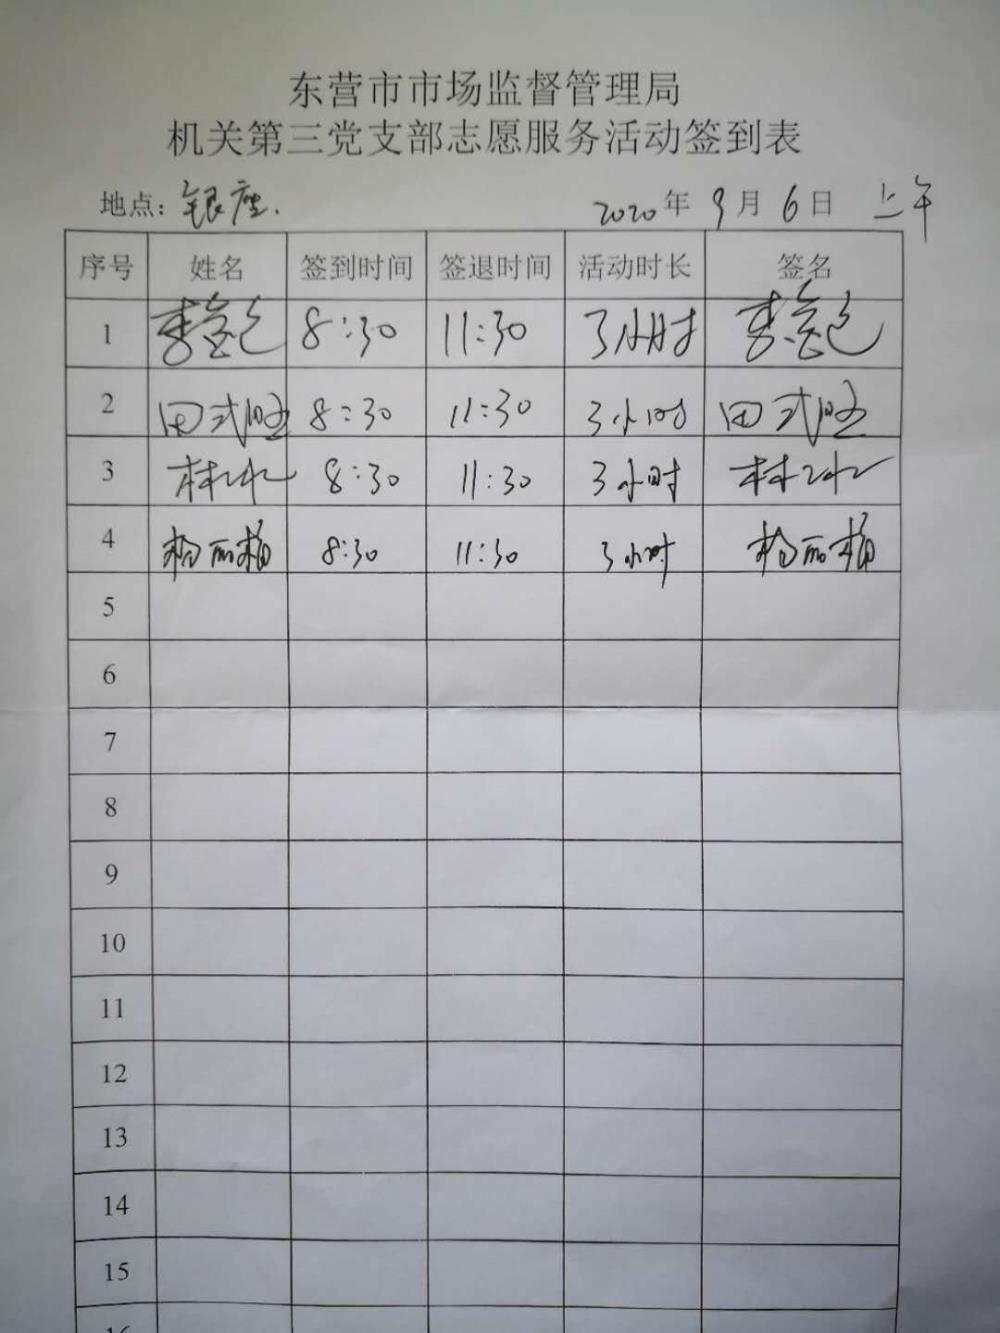 东营市市场监督管理局
机关第三党支部志愿服务活动签到表
地点：银座. 2020年9月6日 上午
序号 姓名 签到时间 签退时间 活动时长 签名
1 8:30 11:30 3小时
2 8:30 11:30 3小时
3 林冰 8:30 11:30 3小时 林冰
4 杨丽梅 8:30 11:30 3小时 杨丽梅
5
6
7
8
9
10
11
12
13
14
15
16